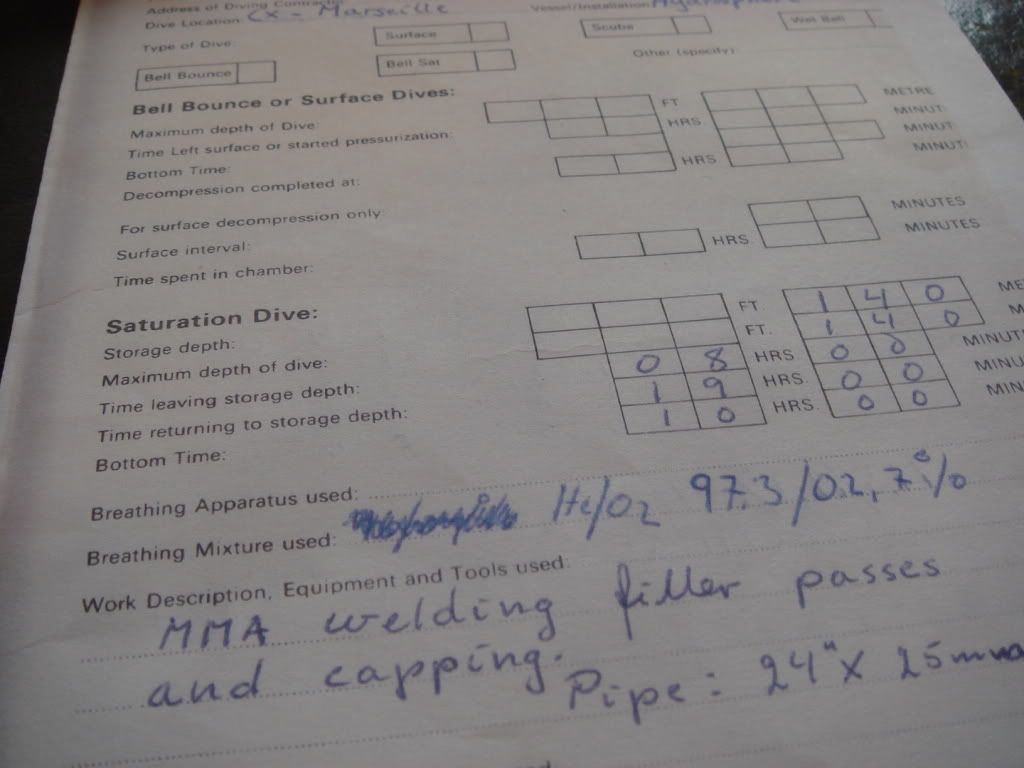 Address of Diving Contractor
Dive Location: CX - Marseille Vessel/Installation
Type of Dive: Surface Scuba Wet Bell
Bell Bounce Bell Sat Other (specify)
Bell Bounce or Surface Dives:
Maximum depth of Dive: FT METRE
Time Left surface or started pressurization: HRS. MINUT
Bottom Time: MINUT
Decompression completed at: HRS MINUT
For surface decompression only:
Surface interval: MINUTES
Time spent in chamber: HRS. MINUTES
Saturation Dive:
Storage depth: FT 1 4 0 ME
Maximum depth of dive: FT. 1 4 0 M
Time leaving storage depth: 0 8 HRS 0 0 MINUT
Time returning to storage depth: 1 9 HRS. 0 0 MINU
Bottom Time: 1 0 HRS. 0 0 MIN
Breathing Apparatus used:
Breathing Mixture used: He/O2 97.3/02,7%
Work Description, Equipment and Tools used:
MMA welding filler passes
and capping.
Pipe: 24" X 25mm